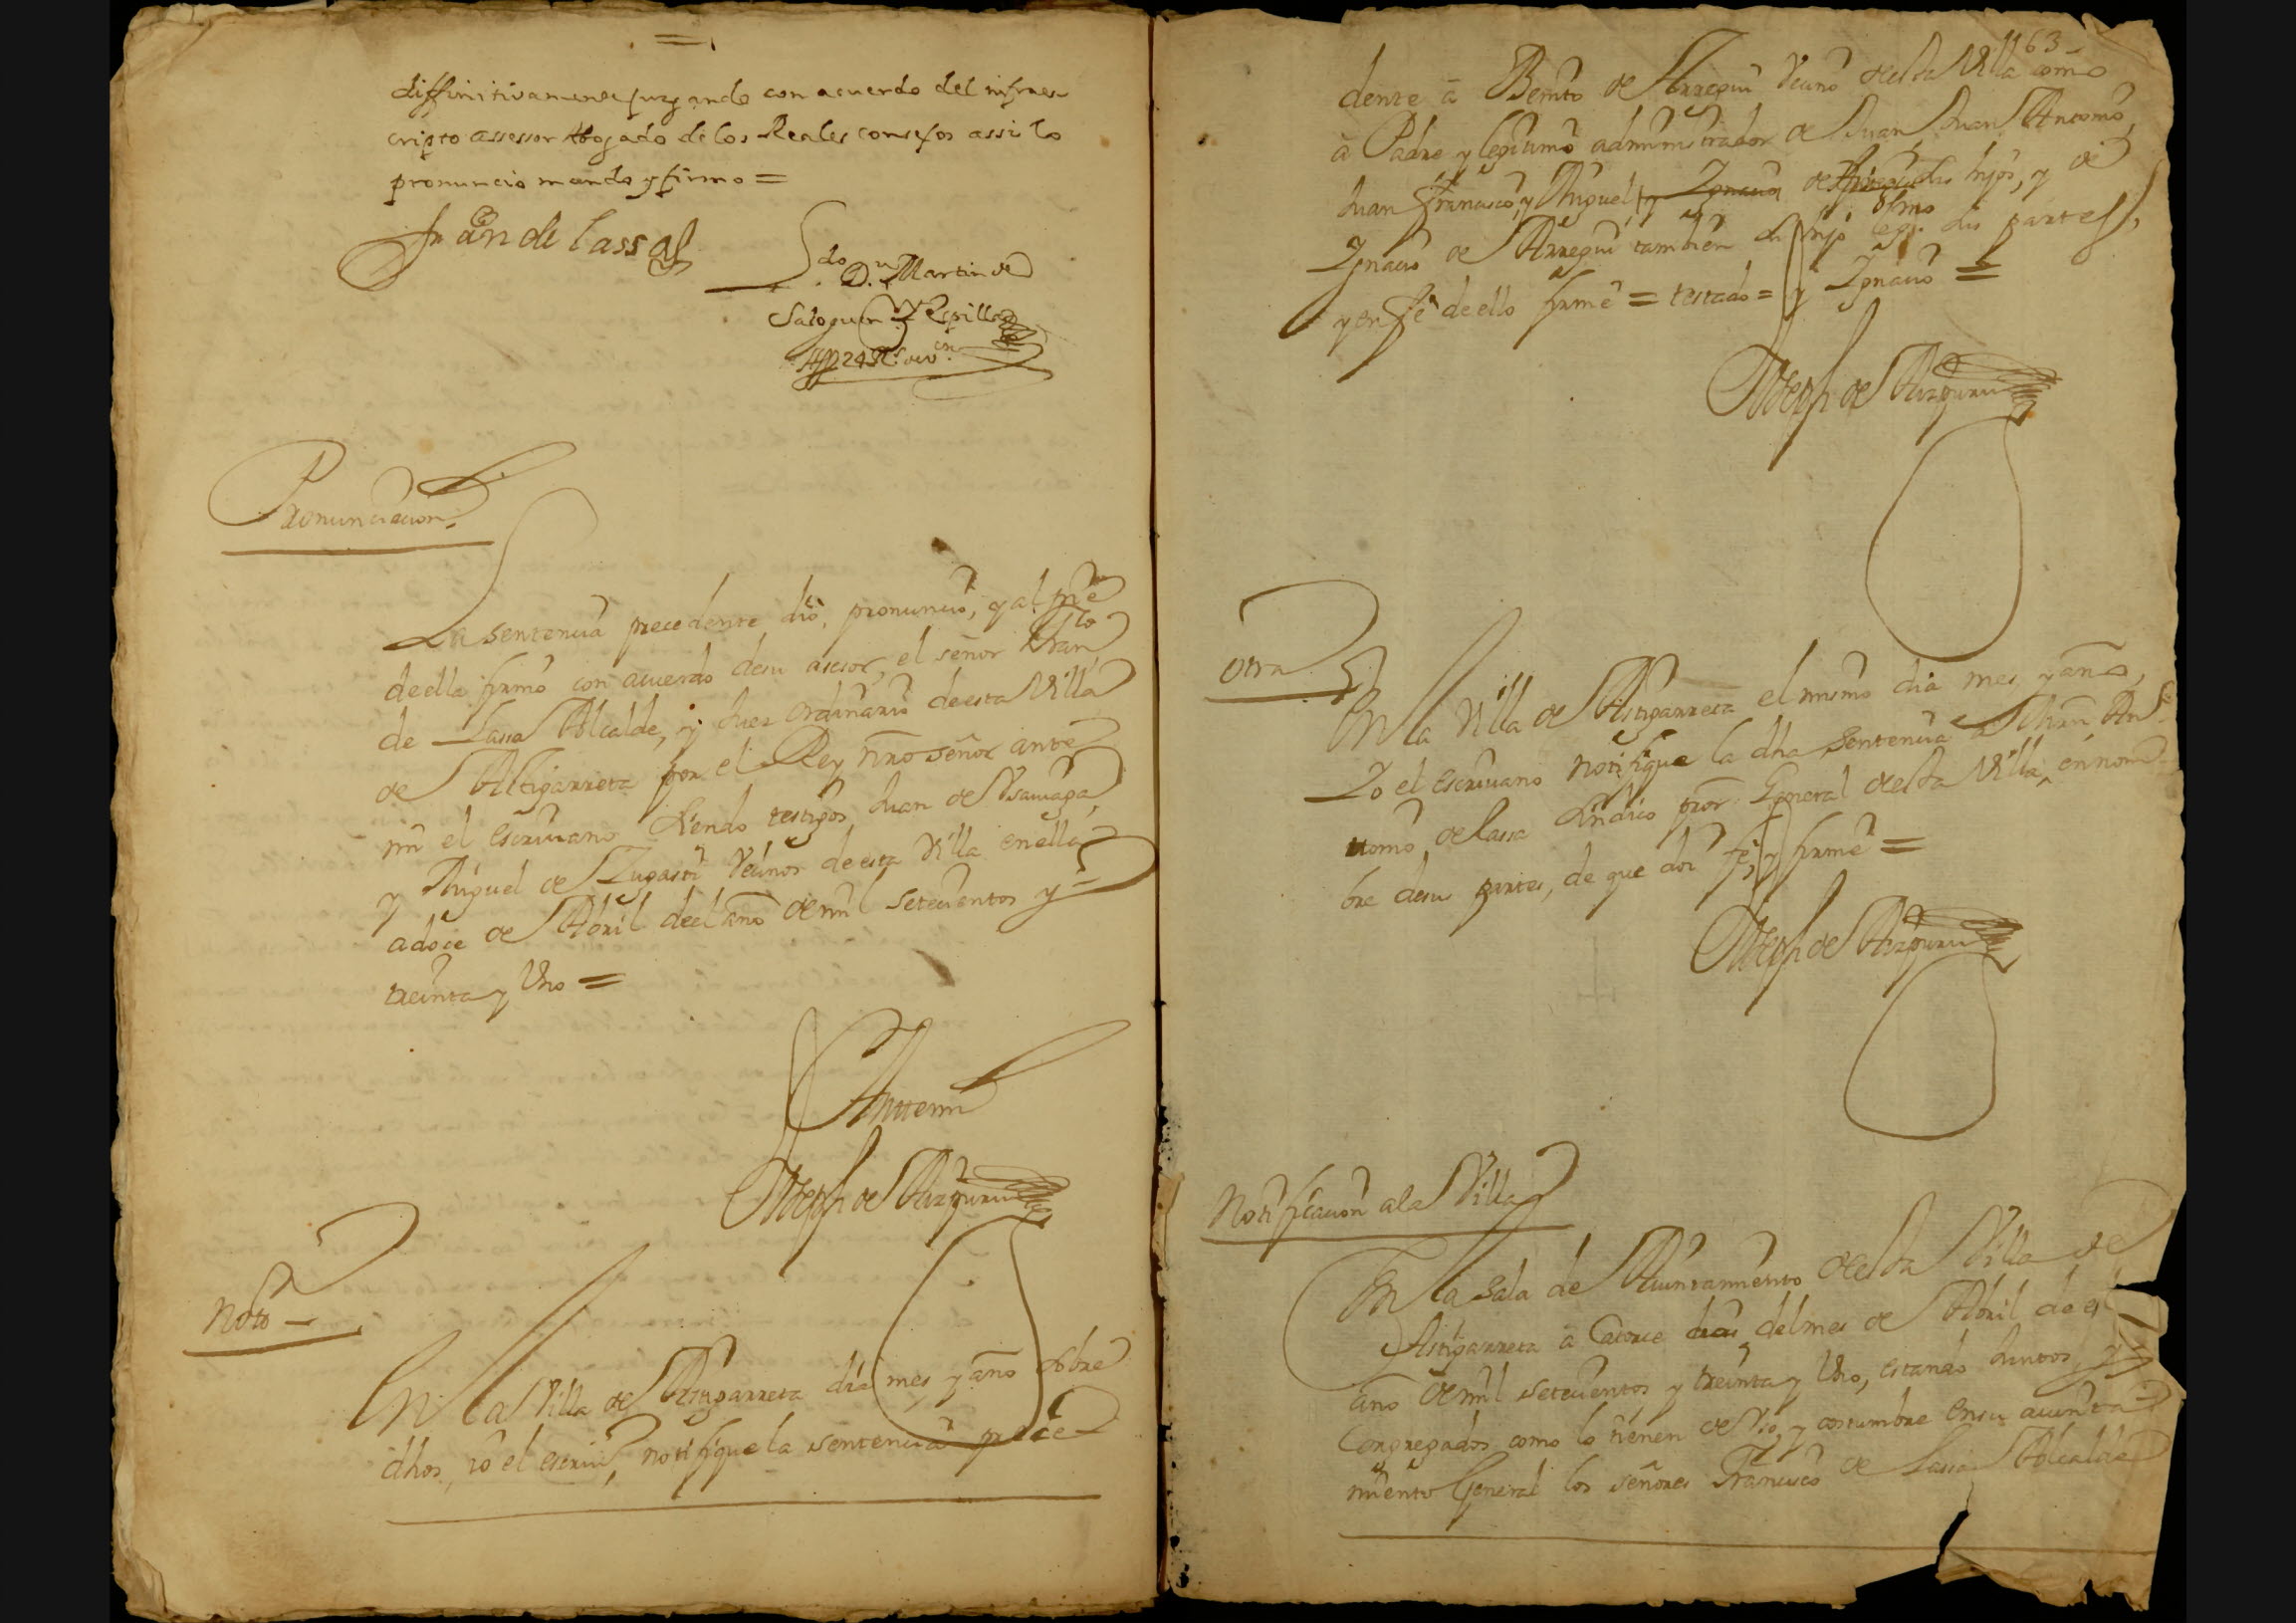 diffinitivamente juzgando con acuerdo del infraes-
cripto assessor Abogado de los Reales consejos assi lo
pronuncio mando y firmo =
Fran de lassa
Ldo Dn Martin de
Saloguen y Espilla
Pronunciacion
La sentencia precedente dió, pronunció, y al pie
de ella firmó con acuerdo desu asesor, el señor Franco
de Lassa Alcalde, y Juez ordinario de esta Villa
de Astigarreta por el Rey nro señor ante
mi el escrivano siendo testigos Juan de
y Miguel de Zugasti vecinos de esta Villa en ella
a doce de Abril del año de mil setecientos y
treinta y Uno =
Antemi
Joseph de Aizpuru
Noton
En la Villa de Astigarreta día mes y año sobre
dhos, yo el escrivo notifique la sentencia prece
63
dente à Benito de Arregui vecino desta Villa como
a Padre y legitimo administrador de Juan, Juan Antonio,
Juan Francisco, y Miguel y Ignacio de Arregui sus hijos, y de
Ignacio de Arregui también su hijo legmo sus partes,
y en fe de ello firmé = testado = y Ignacio =
Joseph de Aizpuru
otra
En la Villa de Astigarreta el mismo día mes, y año,
Yo el escrivano notifique la dha sentencia a Juan An-
tonio de lassa sindico pror General desta Villa, en nom-
bre desus partes, de que doi fe, y firmé =
Joseph de Aizpuru
Notificacion a la Villa
En la sala de Aiuntamiento desta Villa de
Astigarreta à Catorce dias del mes de Abril de el
año de mil setecientos y treinta y Uno, estando Juntos, y
Congregados como lo tienen de Vso, y costumbre en su aiunta
miento General los señores Francisco de Lassa Alcalde